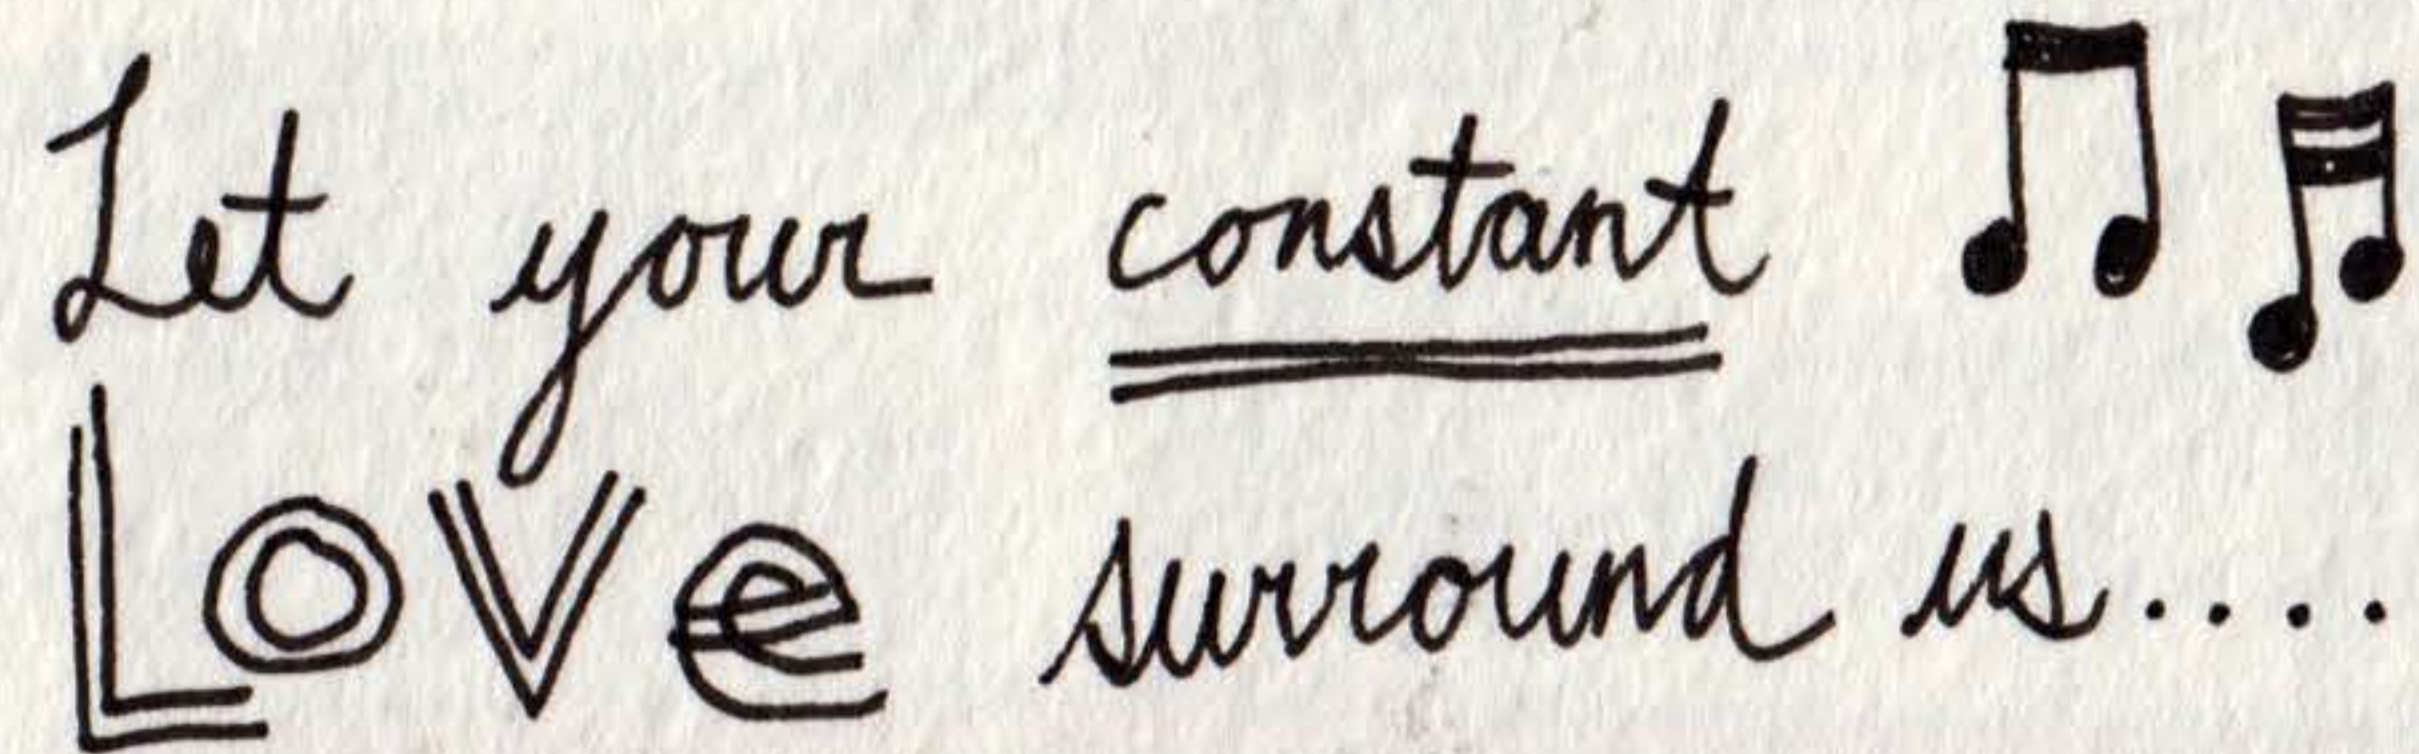 Let your constant
LOVe surround us....